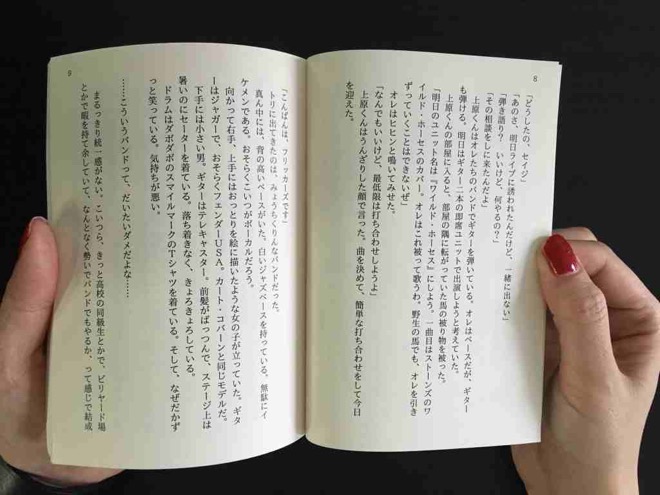 8
「どうしたの、セイジ」
「あのさ、明日ライブに誘われたんだけど、一緒に出ない」
「弾き語り？　いいけど、何やるの？」
「その相談をしに来たんだよ」
上原くんはオレたちのバンドでギターを弾いている。オレはベースだが、ギター
も弾ける。明日はギター二本の即席ユニットで出演しようと考えていた。
上原くんの部屋に入ると、部屋の隅に転がっていた馬の被り物を被った。
「明日のユニット名は『ワイルド・ホーセス』にしよう。一曲目はストーンズのワ
イルド・ホーセスのカバー。オレはこれ被って歌うわ、野生の馬でも、オレを引き
ずっていくことはできないぜ」
オレはヒヒンと鳴いてみせた。
「なんでもいいけど、最低限は打ち合わせしようよ」
上原くんはうんざりした顔で言った。曲を決めて、簡単な打ち合わせをして今日
を迎えた。
9
「こんばんは、フリッカーズです」
トリに出てきたのは、みょうちくりんなバンドだった。
真ん中には、背の高いベースがいた。白いジャズベースを持っている。無駄にイ
ケメンである。おそらくこいつがボーカルだろう。
向かって右手、上手にはおっとりを絵に描いたような女の子が立っていた。ギタ
ーはジャガーで、おそらくフェンダーＵＳＡ。カート・コバーンと同じモデルだ。
下手には小さい男。ギターはテレキャスター。前髪がぱっつんで、ステージ上は
暑いのにセーターを着ている。落ち着きなく、きょろきょろしている。
ドラムはダボダボのスマイルマークのＴシャツを着ている。そして、なぜだかず
っと笑っている。気持ちが悪い。
……こういうバンドって、だいたいダメだよな……
まるっきり統一感がない。こいつら、きっと高校の同級生とかで、ビリヤード場
とかで暇を持て余していて、なんとなく勢いでバンドでもやるか、って感じで結成